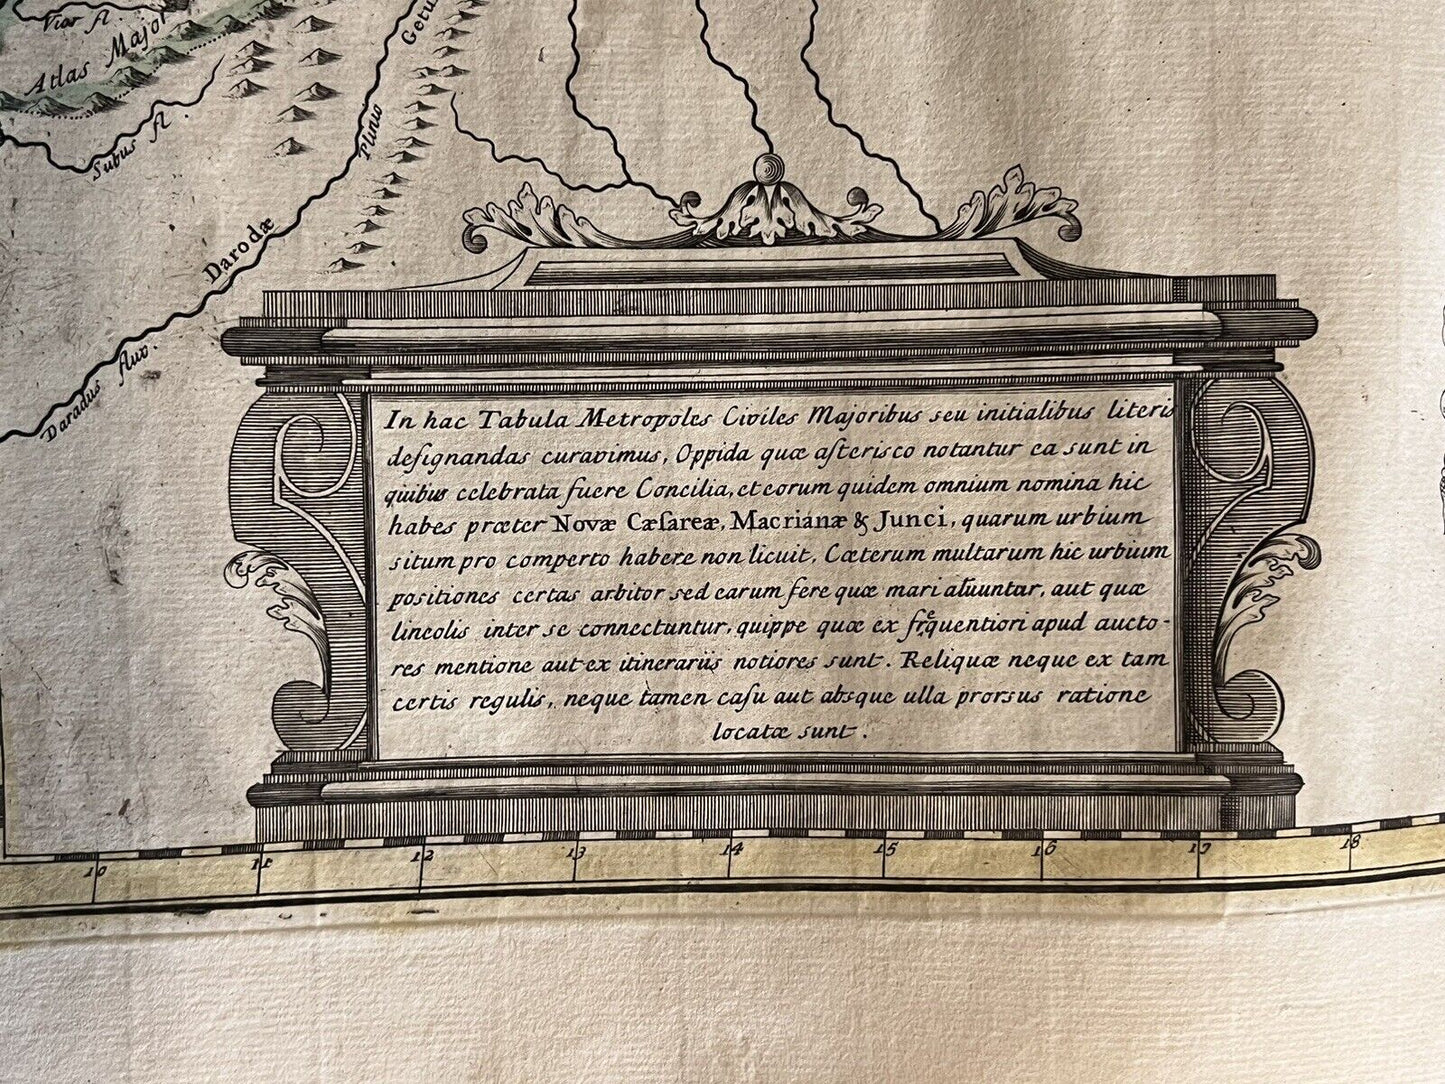 Viar fl
Atlas Major
Subus fl.
Getu
Plinio
Darodæ
Daradus flux.
In hac Tabula Metropoles Civiles Majoribus seu initialibus literis
deſignandas curavimus, Oppida quæ aſteriſco notantur ea sunt in
quibus celebrata fuere Concilia, et eorum quidem omnium nomina hic
habes præter Novæ Cæſareæ, Macrianæ & Junci, quarum urbium
situm pro comperto habere non licuit. Cæterum multarum hic urbium
positiones certas arbitor sed earum fere quæ mari alluuntur, aut quæ
lineolis inter se connectuntur, quippe quæ ex frequentiori apud aucto-
res mentione aut ex itinerariis notiores sunt. Reliquæ neque ex tam
certis regulis, neque tamen caſu aut absque ulla prorsus ratione
locatæ sunt.
10 11 12 13 14 15 16 17 18